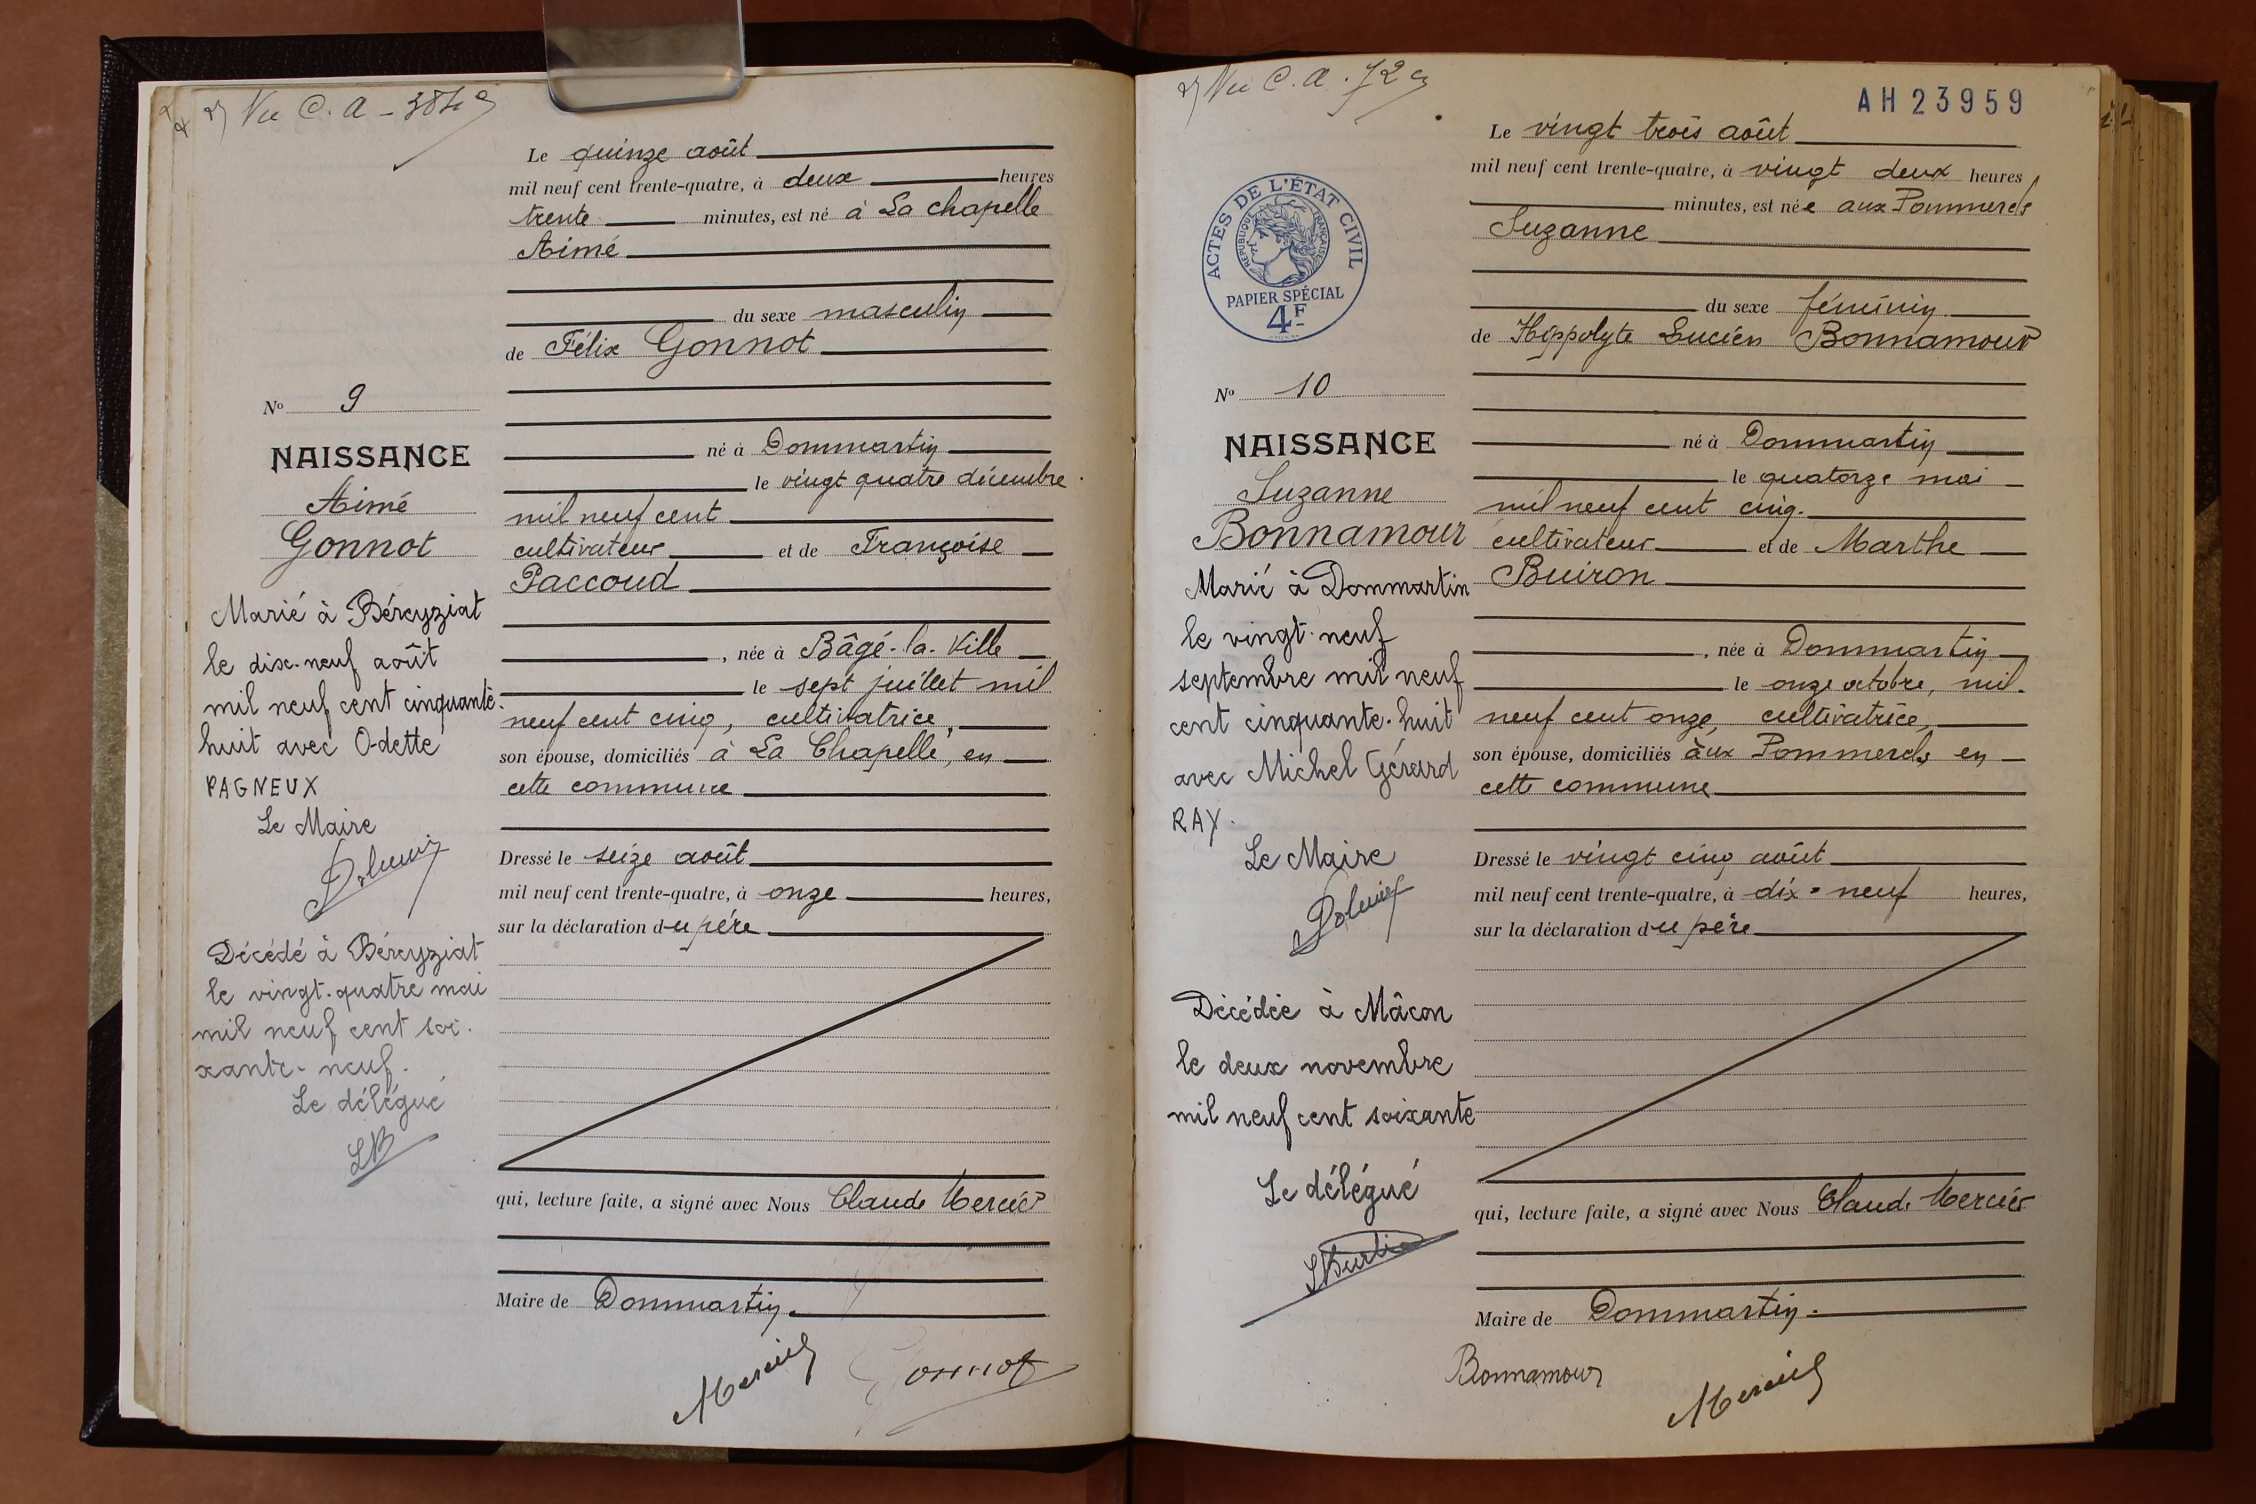 Vu C. A
Le quinze août
mil neuf cent trente-quatre, à deux heures
trente minutes, est né à La Chapelle
Aimé
du sexe masculin
de Félix Gonnot
No 9
NAISSANCE
Aimé
Gonnot
Marié à Béreyziat
le dix-neuf août
mil neuf cent cinquante-
huit avec Odette
PAGNEUX
Le Maire
Décédé à Béreyziat
le vingt-quatre mai
mil neuf cent soi-
xante-neuf.
Le délégué
né à Dommartin
le vingt quatre décembre
mil neuf cent
cultivateur et de Françoise
Paccoud
, née à Bâgé-la-Ville
le sept juillet mil
neuf cent cinq, cultivatrice,
son épouse, domiciliés à La Chapelle, en
cette commune
Dressé le seize août
mil neuf cent trente-quatre, à onze heures,
sur la déclaration du père
qui, lecture faite, a signé avec Nous Claude Mercier
Maire de Dommartin.
Mercier Gonnot
Vu C. A. 72
AH23959
Le vingt trois août
mil neuf cent trente-quatre, à vingt deux heures
minutes, est née aux Pommerels
Suzanne
du sexe féminin
de Hippolyte Lucien Bonnamour
ACTES DE L'ÉTAT CIVIL
RÉPUBLIQUE FRANÇAISE
PAPIER SPÉCIAL
4F
No 10
NAISSANCE
Suzanne
Bonnamour
Marié à Dommartin
le vingt-neuf
septembre mil neuf
cent cinquante-huit
avec Michel Gérard
RAY.
Le Maire
Décédée à Mâcon
le deux novembre
mil neuf cent soixante
Le délégué
né à Dommartin
le quatorze mai
mil neuf cent cinq.
cultivateur et de Marthe
Buiron
, née à Dommartin
le onze octobre, mil
neuf cent onze, cultivatrice,
son épouse, domiciliés aux Pommerels en
cette commune
Dressé le vingt cinq août
mil neuf cent trente-quatre, à dix-neuf heures,
sur la déclaration du père
qui, lecture faite, a signé avec Nous Claude Mercier
Maire de Dommartin.
Bonnamour
Mercier